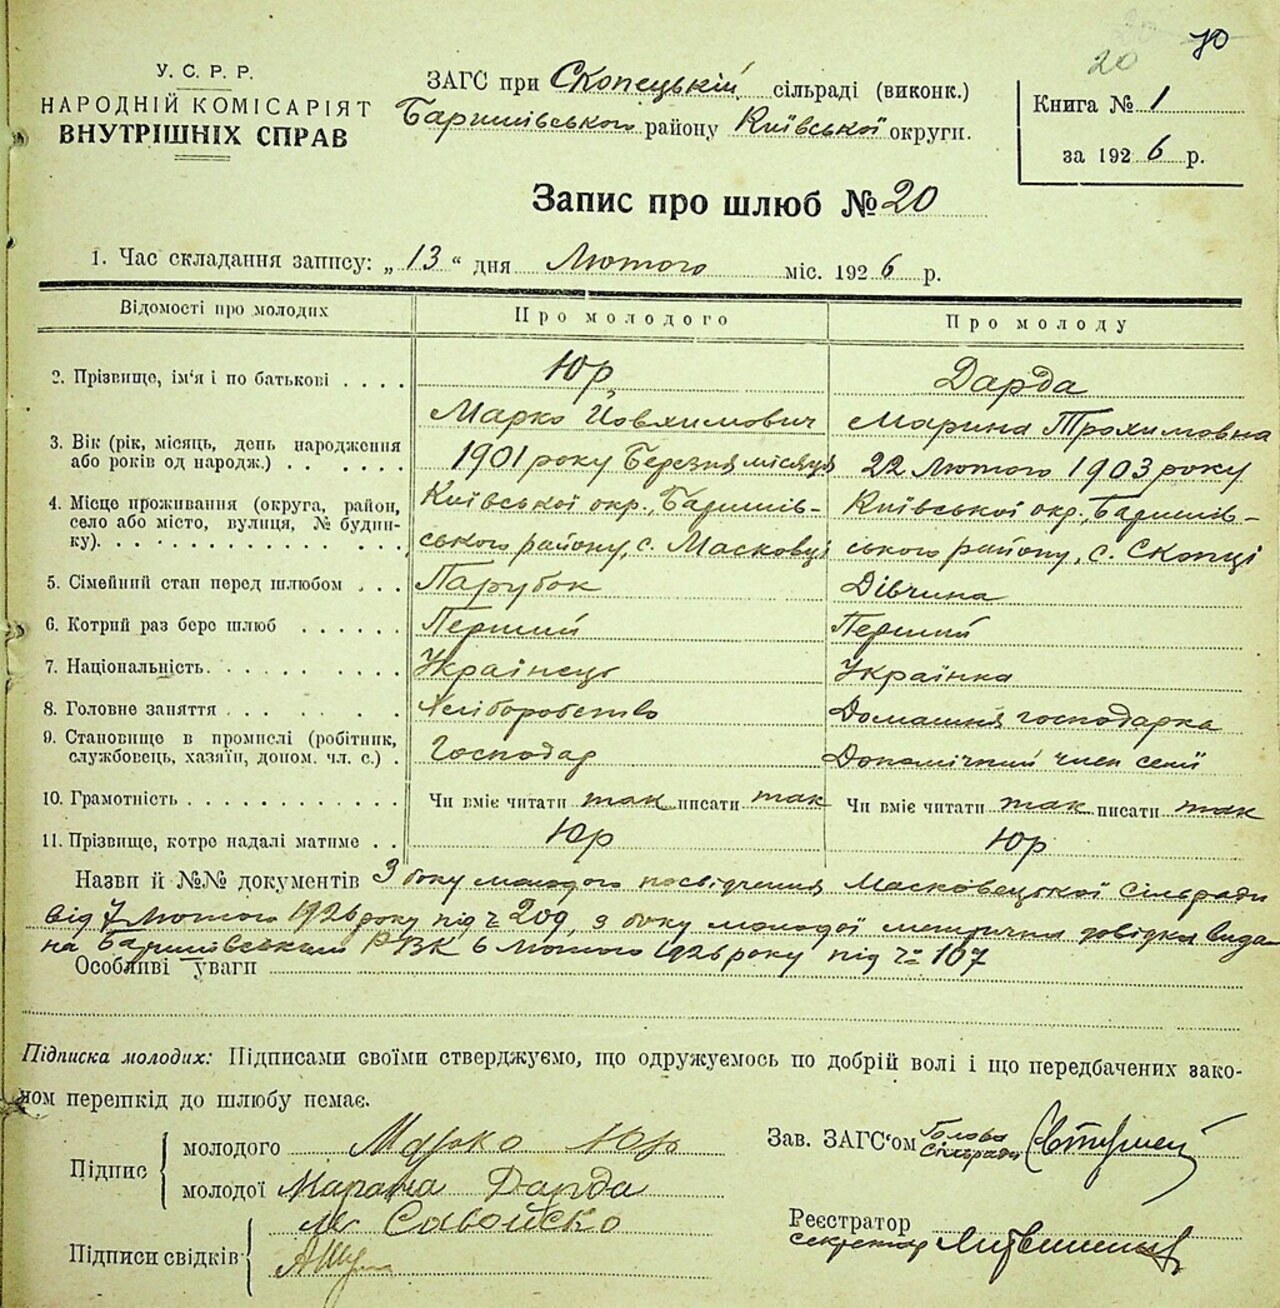 70
20
У. С. Р. Р.
НАРОДНІЙ КОМІСАРІЯТ
ВНУТРІШНІХ СПРАВ
ЗАГС при Скопецькій сільраді (виконк.)
Баришівського району Київської округи.
Книга № 1
за 1926 р.
Запис про шлюб № 20
1. Час складання запису: „13“ дня Лютого міс. 1926 р.
Відомості про молодих
Про молодого
Про молоду
2. Прізвище, ім‘я і по батькові . . . .
Юр
Дарда
Марко Йовхимович
Марина Трохимовна
3. Вік (рік, місяць, день народження
або років од народж.) . . . . . .
1901 року Березня місяця
22 Лютого 1903 року
4. Місце проживання (округа, район,
село або місто, вулиця, № будин-
ку). . . . . . . . . . . . . .
Київської окр., Баришів-
ського району, с. Масковці
Київської окр., Баришів-
ського району, с. Скопці
5. Сімейний стан перед шлюбом . . .
Парубок
Дівчина
6. Котрий раз бере шлюб . . . . . .
Перший
Перший
7. Національність. . . . . . . . .
Українець
Українка
8. Головне заняття . . . . . . .
Хліборобство
Домашня господарка
9. Становище в промислі (робітник,
службовець, хазяїн, допом. чл. с.) .
Господар
Допомічний член семії
10. Грамотність . . . . . . . . . .
Чи вміє читати так писати так
Чи вміє читати так писати так
11. Прізвище, котре надалі матиме . .
Юр
Юр
Назви й №№ документів З боку молодого посвідчення Масковецької Сільради
від 7 Лютого 1926 року під ч 209, з боку молодої метрична довідка вида-
на Баришівським РВК 6 Лютого 1926 року під ч 107
Особливі уваги
Підписка молодих: Підписами своїми стверджуємо, що одружуємось по добрій волі і що передбачених зако-
ном перешкід до шлюбу немає.
Підпис
молодого Марко Юр
молодої Марина Дарда
Підписи свідків
М. Савойско
Зав. ЗАГС‘ом Голова
Сільради
Реєстратор
секретар